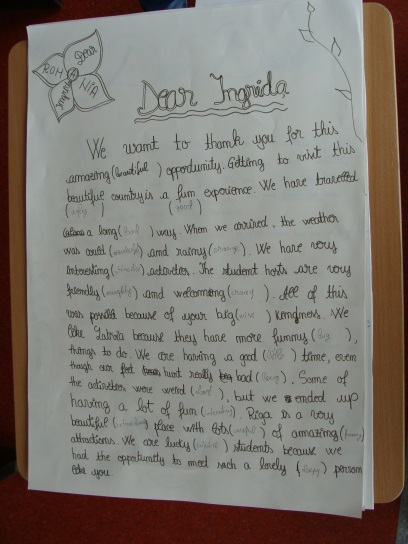 Dear
Dear Ingrida,
We want to thank you for this
amazing (beautiful) opportunity. Getting to visit this
beautiful country is a fun experience. We have travelled
(ugly) (good)
a long () way. When we arrived, the weather
was could () and rainy (strange). We have very
interesting () activities. The student hosts are very
friendly (naughty) and welcoming (). All of this
was possible because of your big (nice) kindness. We
like Latvia because they have more funny (big),
things to do. We are having a good (little) time, even
though our feet hurt really bad (). Some of
the activities were weird (), but we ended up
having a lot of fun (). Riga is a very
beautiful () place with lots () of amazing (funny)
attractions. We are lucky () students because we
had the opportunity to meet such a lovely () person
like you.